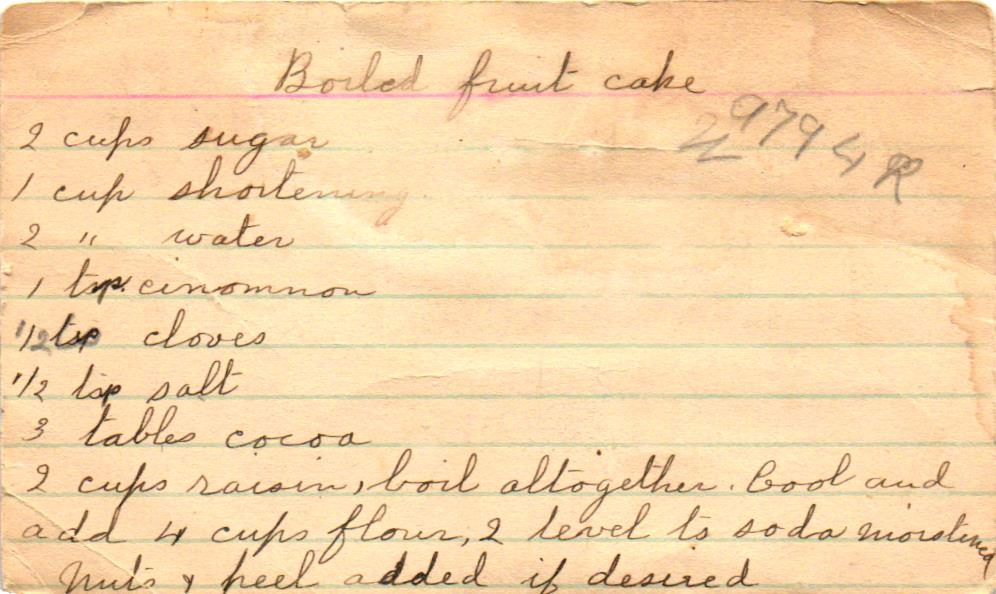 Boiled fruit cake
2 9794 R
2 cups sugar
1 cup shortening
2 " water
1 tsp. cinomnon
1/2 tsp cloves
1/2 tsp salt
3 tables cocoa
2 cups raisin, boil altogether. Cool and
add 4 cups flour, 2 level ts soda moistened
Nuts & peel added if desired